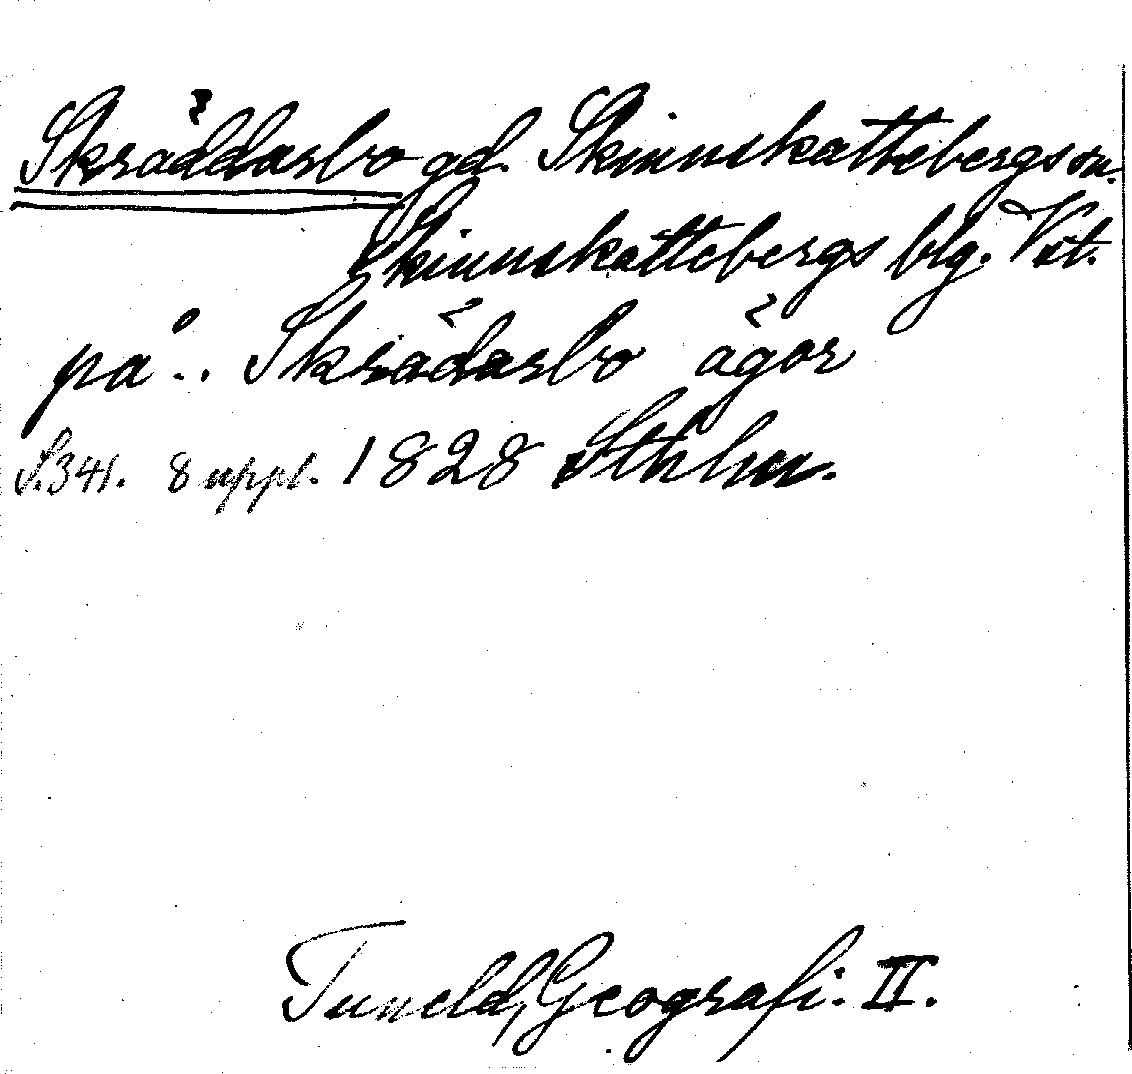 Skräddarsbo gd. Skinnskattebergs sn.
Skinnskattebergs blg. Vst.
på .. Skrädarsbo ägor
S. 341. 8 uppl. 1828 Sthlm.
Tuneld, Geografi. II.